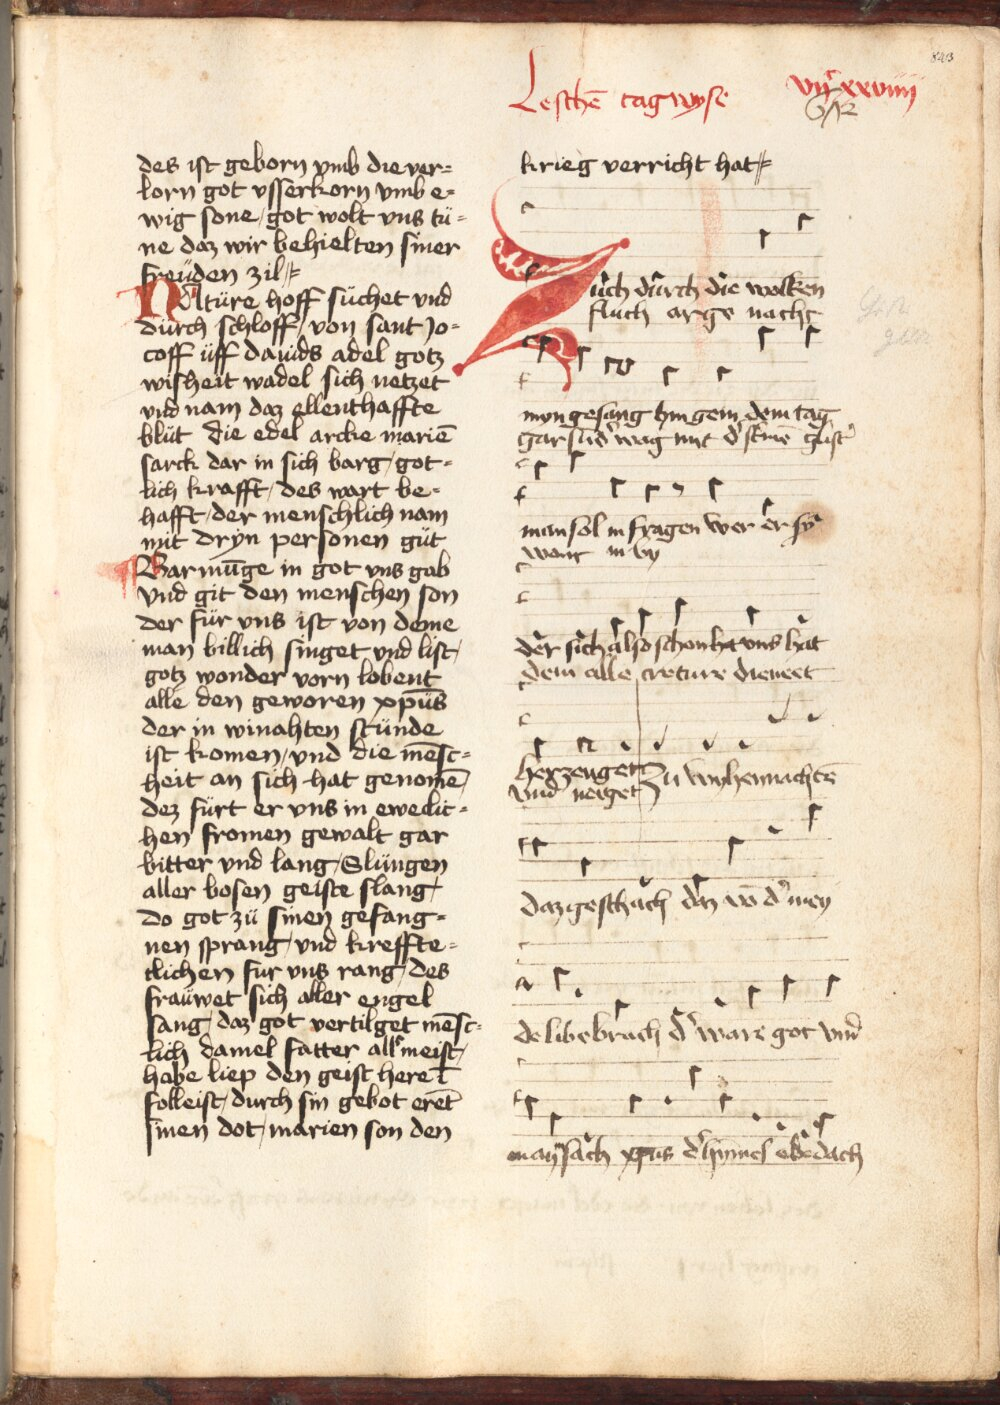 843
Leschē tagwyse
vijc xxviiij
des ist geborn vmb die ver=
lorn got vsserkorn vmb e=
wig sone / got wolt vns tü=
ne daz wir behielten siner
freüden zil
NAtüre hoff süchet vnd
dürch schloff / von sant Jo=
coff üff dauids adel gotz
wisheit wadel sich netzet
vnd nam daz ellenthaffte
blüt die edel arcke mariē
sarck dar in sich barg / got=
lich krafft / des wart be=
hafft / der menschlich nam
mit dryn personen güt
Barmūge in got vns gab
vnd git den menschen son
der für vns ist von deme
man billich singet vnd list /
gotz wonder vorn lobent
alle den geworen xp̄us
der in winahten stunde
ist komen / vnd die mēsc=
heit an sich hat genomē /
dez fürt er vns in ewedic=
hen fromen gewalt gar
bitter vnd lang / Slüngen
aller bosen geiste slang /
do got zü sinen gefang=
nen sprang / vnd kreffte=
clichen fur vns rang / des
frauwet sich aller engel
sang / daz got vertilget mēsc=
lich damel fatter all meist /
habe liep den geist here t
folleist / durch sin gebot erēt
sinen dot / marien son den
krieg verricht hat
Züch dürch die wolken
fluch arge nacht
myn gesang hin gein dem tag
gar wag mit d'
man sol in fragen wer er sy
wont im by
der sich also schon het vns hat
dem alle creture dienent
herzeuget
vnd neiget
zu wyhennachtē
daz geschach daz vō d' mey
de libe brach d' ware got vnd
man sach xp̄us d' himels dach